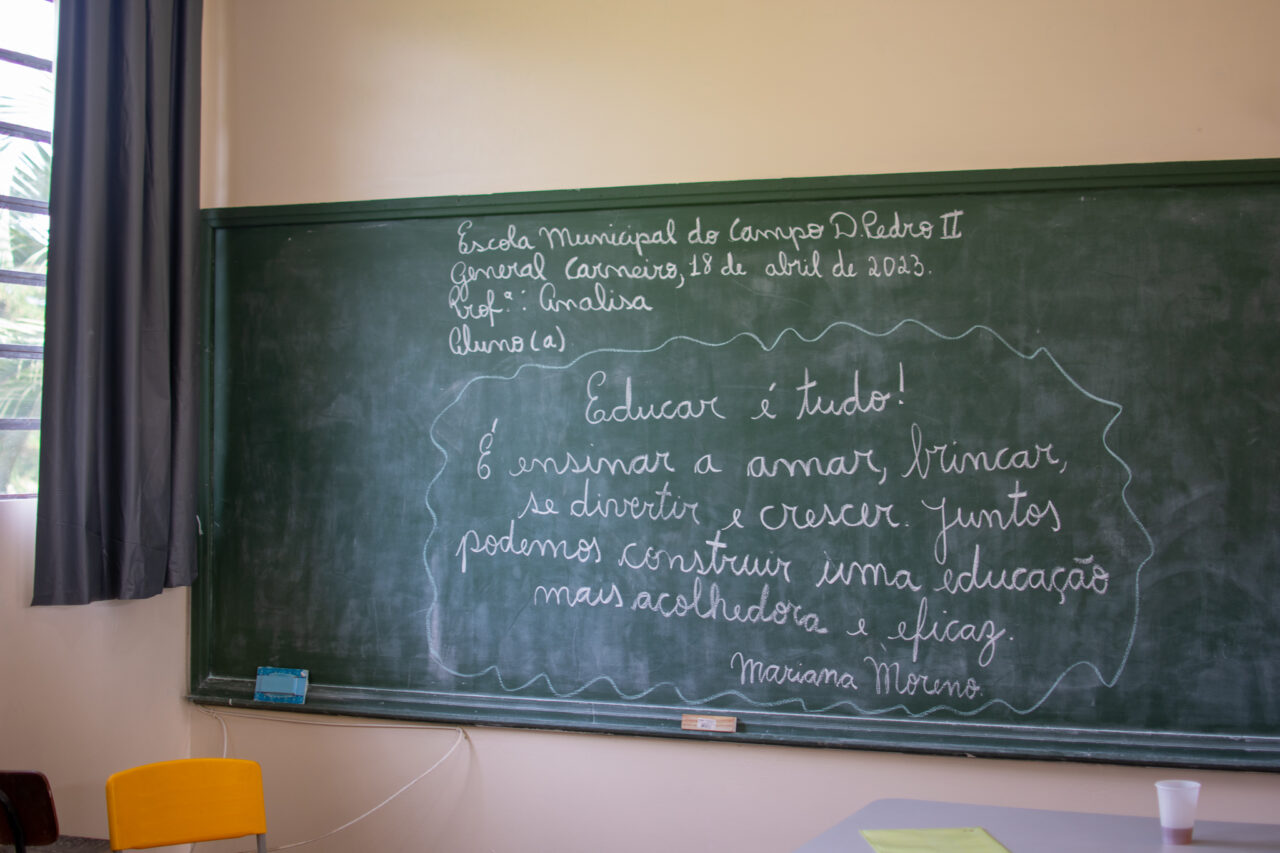 Escola Municipal do Campo D. Pedro II
General Carneiro, 18 de abril de 2023.
Profª: Analisa
Aluno (a)
Educar é tudo!
É ensinar a amar, brincar,
se divertir e crescer. Juntos
podemos construir uma educação
mais acolhedora e eficaz.
Mariana Moreno.